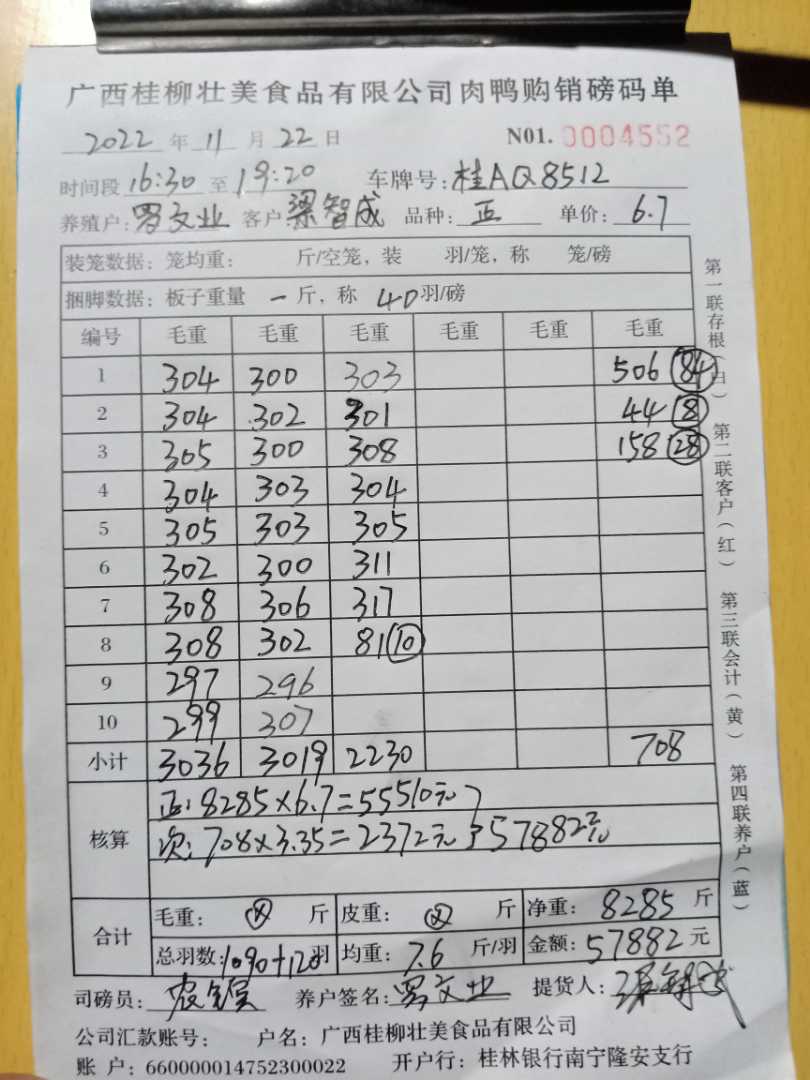 广西桂柳壮美食品有限公司肉鸭购销磅码单
2022 年 11 月 22 日 N01. 0004552
时间段 16:30 至 19:20 车牌号: 桂AQ8512
养殖户: 罗文业 客户 梁智成 品种: 正 单价: 6.7
装笼数据: 笼均重: 斤/空笼, 装 羽/笼, 称 笼/磅
捆脚数据: 板子重量 一 斤, 称 40 羽/磅
编号 毛重 毛重 毛重 毛重 毛重 毛重
1 304 300 303 506 84
2 304 302 301 44 8
3 305 300 308 158 28
4 304 303 304
5 305 303 305
6 302 300 311
7 308 306 317
8 308 302 81 10
9 297 296
10 299 307
小计 3036 3019 2230 708
核算
正: 8285×6.7=55510元
次: 708×3.35=2372元 57882元
合计
毛重: 斤 皮重: 斤 净重: 8285 斤
总羽数: 1090+120羽 均重: 7.6 斤/羽 金额: 57882 元
司磅员: 养户签名: 罗文业 提货人:
公司汇款账号: 户名: 广西桂柳壮美食品有限公司
账 户: 660000014752300022 开户行: 桂林银行南宁隆安支行
第一联存根(白)
第二联客户(红)
第三联会计(黄)
第四联养户(蓝)